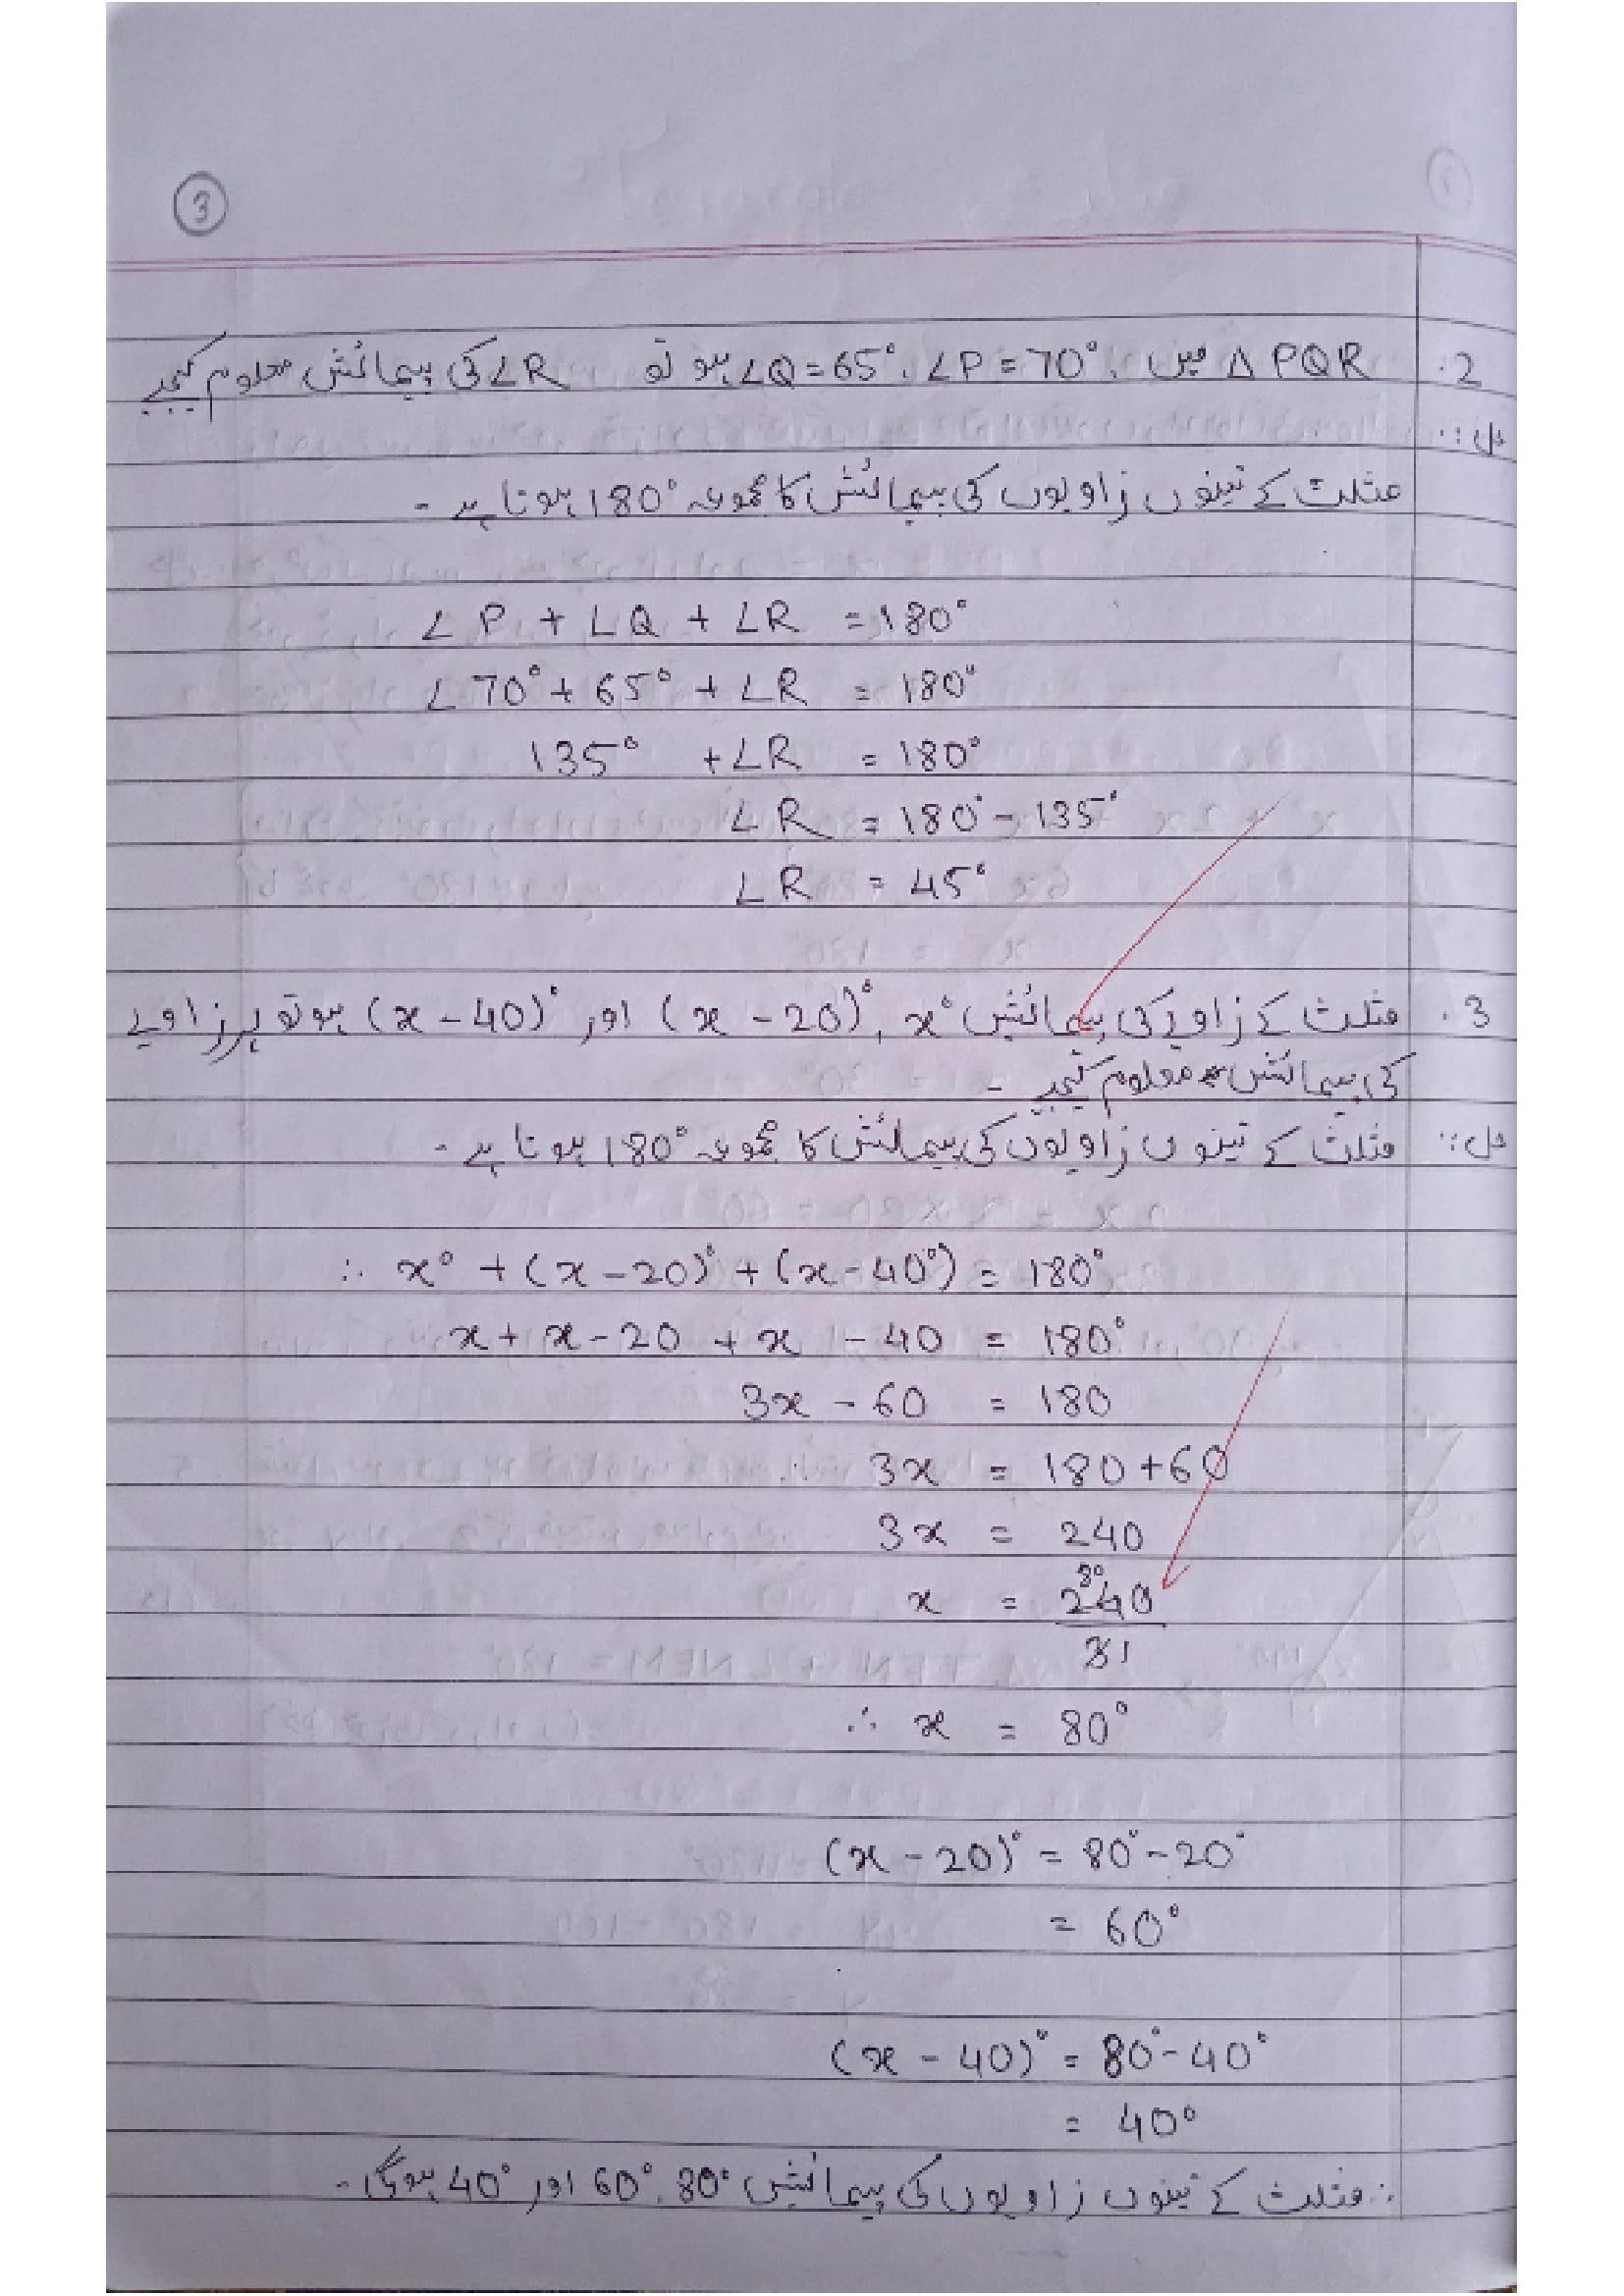 3
2. Δ PQR میں، ∠P = 70°، ∠Q = 65° ہو تو ∠R کی پیمائش معلوم کیجیے
حل::
مثلث کے تینوں زاویوں کی پیمائش کا مجموعہ 180° ہوتا ہے -
∠P + ∠Q + ∠R = 180°
∠70° + 65° + ∠R = 180°
135° + ∠R = 180°
∠R = 180° - 135°
∠R = 45°
3. مثلث کے زاویے کی پیمائش x°، (x - 20)° اور (x - 40)° ہو تو ہر زاویے
کی پیمائش معلوم کیجیے -
حل:: مثلث کے تینوں زاویوں کی پیمائش کا مجموعہ 180° ہوتا ہے -
∴ x° + (x - 20)° + (x - 40°) = 180°
x + x - 20 + x - 40 = 180°
3x - 60 = 180
3x = 180 + 60
3x = 240
80
x = 240
31
∴ x = 80°
(x - 20)° = 80° - 20°
= 60°
(x - 40)° = 80° - 40°
= 40°
∴ مثلث کے تینوں زاویوں کی پیمائش 80°، 60° اور 40° ہوگی -